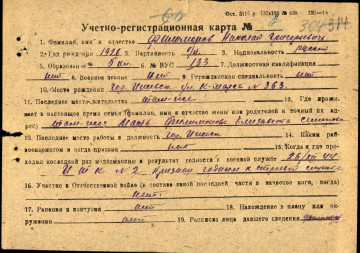 Учетно-регистрационная карта №
1. Фамилия, имя и отчество Филимонов Николай
2. Год рождения 1926 3. Партийность б/п 4. Национальность русск
5. Образование 5 кл. 6. № ВУС 133 7. Должностная квалификация
нет 8. Военное звание нет 9. Гражданская специальность нет
10. Место рождения гор. ул. К-Маркса № 363
11. Последнее местожительства там-же 12. Где проживает
в настоящее время семья Фамилия, имя и отчество жены или родителей и точный их адрес
там-же мать Филимонова Елизавета
13. Последнее место работы и должность гор. 14. Каким
военкоматом и когда призван нет 15. Когда и где проходил
последний раз медкомиссию и результат годности к военной службе 26/XII 44
№ 2. Признан годным к строевой службе
16. Участие в Отечественной войне (в составе какой последней части в качестве кого, когда)
нет.
17. Ранения и контузия нет 18. Нахождение в плену или окружении
нет 19. Росписка лица давшего сведения